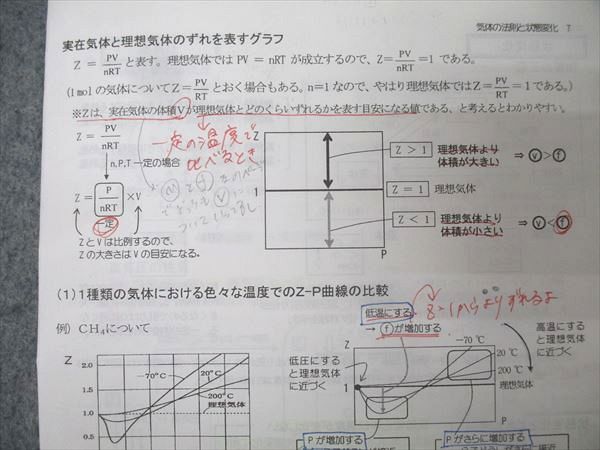 気体の法則と状態変化 7
実在気体と理想気体のずれを表すグラフ
Z = PV/nRT と表す。理想気体では PV = nRT が成立するので、Z=PV/nRT=1 である。
(1molの気体について Z=PV/RT とおく場合もある。n=1なので、やはり理想気体では Z=PV/RT=1である。)
※Zは、実在気体の体積Vが理想気体とどのくらいずれるかを表す目安になる値である、と考えるとわかりやすい。
一定の温度で
比べるとき
Z = PV/nRT
n,P,T 一定の場合
Z = P/nRT ×V
一定
ZとVは比例するので、
Zの大きさはVの目安になる。
Z
1
P
Z > 1 理想気体より体積が大きい ⇒ ⓥ>ⓕ
Z = 1 理想気体
Z < 1 理想気体より体積が小さい ⇒ ⓥ<ⓕ
(1) 1種類の気体における色々な温度でのZ-P曲線の比較
例) CH₄について
Z
2.0
1.5
1.0
0.5
-70℃
20℃
200℃
理想気体
低温にする
→ ⓕが増加する
Z=1からよりずれるよ
低圧にする
と理想気体
に近づく
Z
1
P
-70℃
20℃
200℃
理想気体
高温にする
と理想気体
に近づく
Pが増加する
Pがさらに増加する